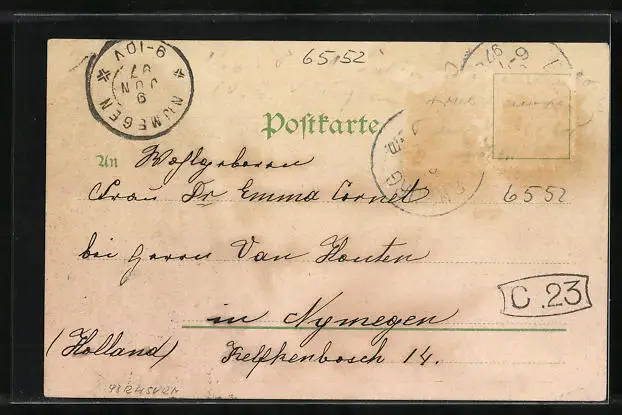 6552
NIJMEGEN
9 JUN 97
9-10V
Postkarte
An Wohlgeboren
Frau Dr Emma Cornet
6552
bei Herrn Van Houten
C.23
in Nymegen
(Holland) Kelfkenbosch 14.